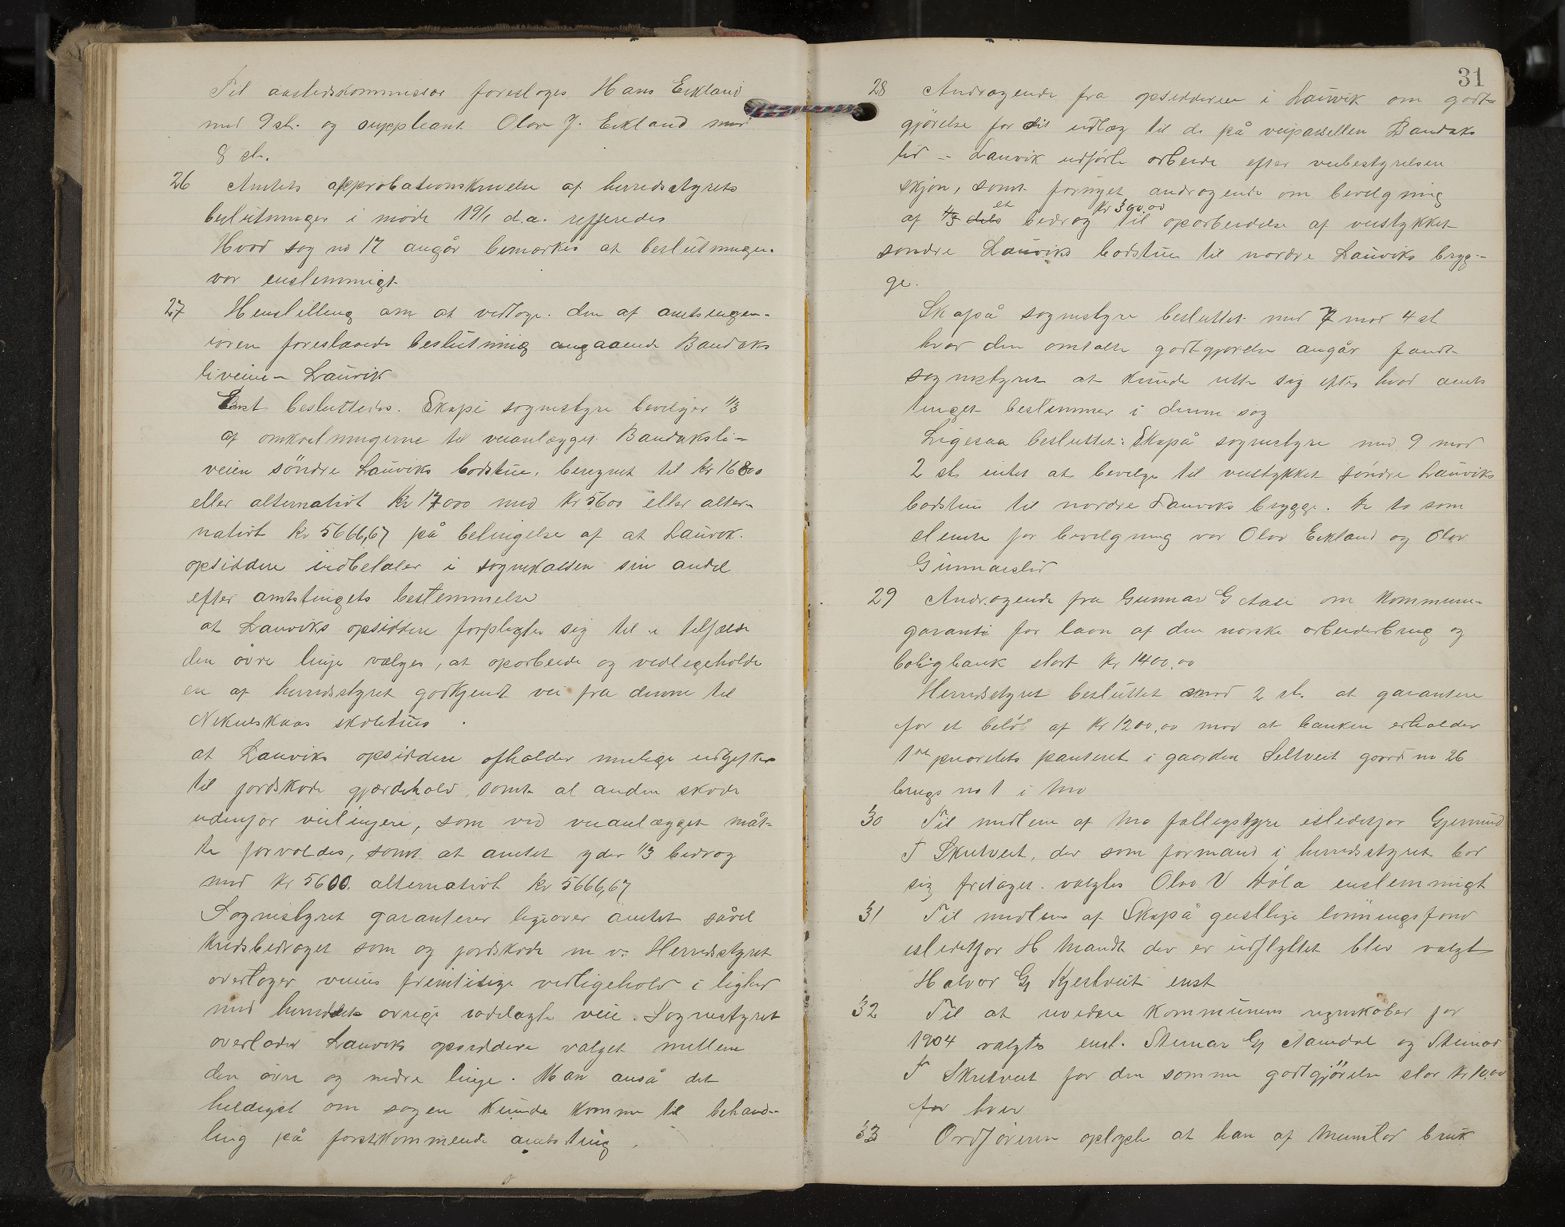 Til aastedskommissær foresloges Hans Eekland
med 9 st. og suppleant Olav J. Eekland med
8 st.
26 Amtets approbationskrivelse af herredsstyrets
beslutninger i møde 19/1 d.a. refferedes
Hvad sag no 17 angår bemærkes at beslutningen
var enstemmigt
27 Henstelling om at vedtage den af amtsingen-
iøren foreslaaede beslutning angaaende Bandaks-
liveien - Lauvik
Enst besluttedes. Skapå sognestyre bevilger 1/3
af omkostningerne til veianlægget Bandaksli-
veien søndre Lauviks badstue, beregnet til kr 16800
eller alternativt kr 17000 med kr 5600 eller alter-
nativt kr 5666,67 på betingelse af at Lauvik
opsiddere indbetaler i sognekassen sin andel
efter amtstingets bestemmelse
at Lauviks opsiddere forpligter sig til i tilfælde
den övre linje vælges, at oparbeide og vedligeholde
en af herredsstyret godkjent vei fra denne til
skolehus
at Lauviks opsiddere afholder mulige udgifter
til jordskade gjærdehold, samt al anden skade
udenfor veilinjen, som ved veianlægget måt-
te forvoldes, samt at amtet yder 1/3 bedrag
med kr 5600. alternativt kr 5666,67
Sognestyret garanterer ligeover amtet såvel
kredsbedraget som og jordskade m v. Herredsstyret
overtager veiens fremtidige vedligehold i lighed
med herredets øvrige rodelagte veie. Sognestyret
overlader Lauviks opsiddere valget mellem
den øvre og nedre linje. Man anså det
heldigst om sagen kunde komme til behand-
ling på førstkommende amtsting.
31
28 Andragende fra opsidderne i Lauvik om godt-
gjørelse for sit udlæg til de på veiparsellen Bandaks
lid - Lauvik udførte arbeide efter veibestyrelsens
skjøn, samt fornyet andragende om bevilgning
af 1/3 dels et bedrag kr 300,00 til oparbeidelse af veistykket
søndre Lauviks badstue til nordre Lauviks bryg-
ge.
Skapå sognestyre besluttet med 7 mod 4 st
hvad den omtalte godtgjørelse angår fandt
sognestyret at kunde rette sig efter hvad amts
tinget bestemmer i denne sag
Ligesaa besluttet: Skapå sognestyre med 9 mod
2 st. intet at bevilge til veistykket søndre Lauviks
badstue til nordre Lauviks brygge. De to som
stemte for bevilgning var Olav Eekland og Olav
Gunnarslid
29 Andragende fra Gunnar G Aase om kommune-
garanti for laan af den norske arbeiderbrug og
boligbank stort kr 1400,00
Herredsstyret besluttet mod 2 st. at garantere
for et beløb af kr 1200,00 mod at banken erholder
1ste prioritets panteret i gaarden Seltveit gaard no 26
brugs no 1 i Mo
30 Til medlem af Mo fattigstyre istedetfor Gjermund
T Skretveit, der som formand i herredsstyret bør
sig fritaget. valgtes Olav V Høla enstemmigt
31 Til medlem af Skapå geistlige lønningsfond
istedetfor H Mandt der er udflyttet blev valgt
Halvor G Kjestveit enst
32 Til at revidere kommunens regnskaber for
1904 valgtes enst. Steinar G Aamdal og Steinar
T Skretveit for den samme godtgjörelse stor kr 10,00
for hver
33 Ordføreren oplyste at han af